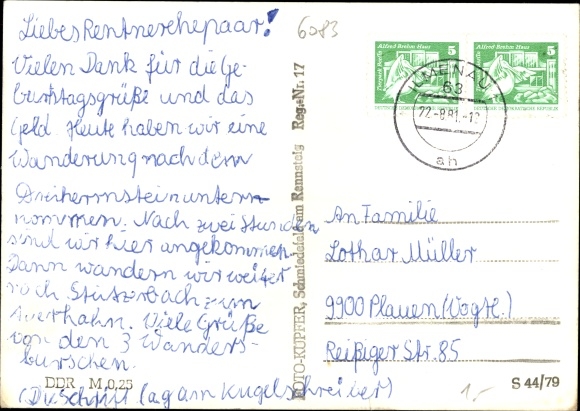 Liebes Rentnerehepaar!
Vielen Dank für die Ge-
burtstagsgrüße und das
Geld. Heute haben wir eine
Wanderung nach dem
Dreiherrnstein untern-
nommen. Nach zwei Stunden
sind wir hier angekommen.
Dann wandern wir weiter
nach Stützerbach zum
Auerhahn. Viele Grüße
von den 3 Wanders-
burschen.
(Die Schrift lag am Kugelschreiber)
DDR M 0,25
FOTO-KUPFER, Schmiedefeld am Rennsteig Reg.-Nr. 17
6083
Tierpark Berlin
Alfred-Brehm-Haus
5
DEUTSCHE DEMOKRATISCHE REPUBLIK
Tierpark Berlin
Alfred-Brehm-Haus
5
DEUTSCHE DEMOKRATISCHE REPUBLIK
ILMENAU
63
22.-8.81.-12
ah
An Familie
Lothar Müller
9900 Plauen (Vogtl.)
Reißiger Str. 85
1,-
S 44/79